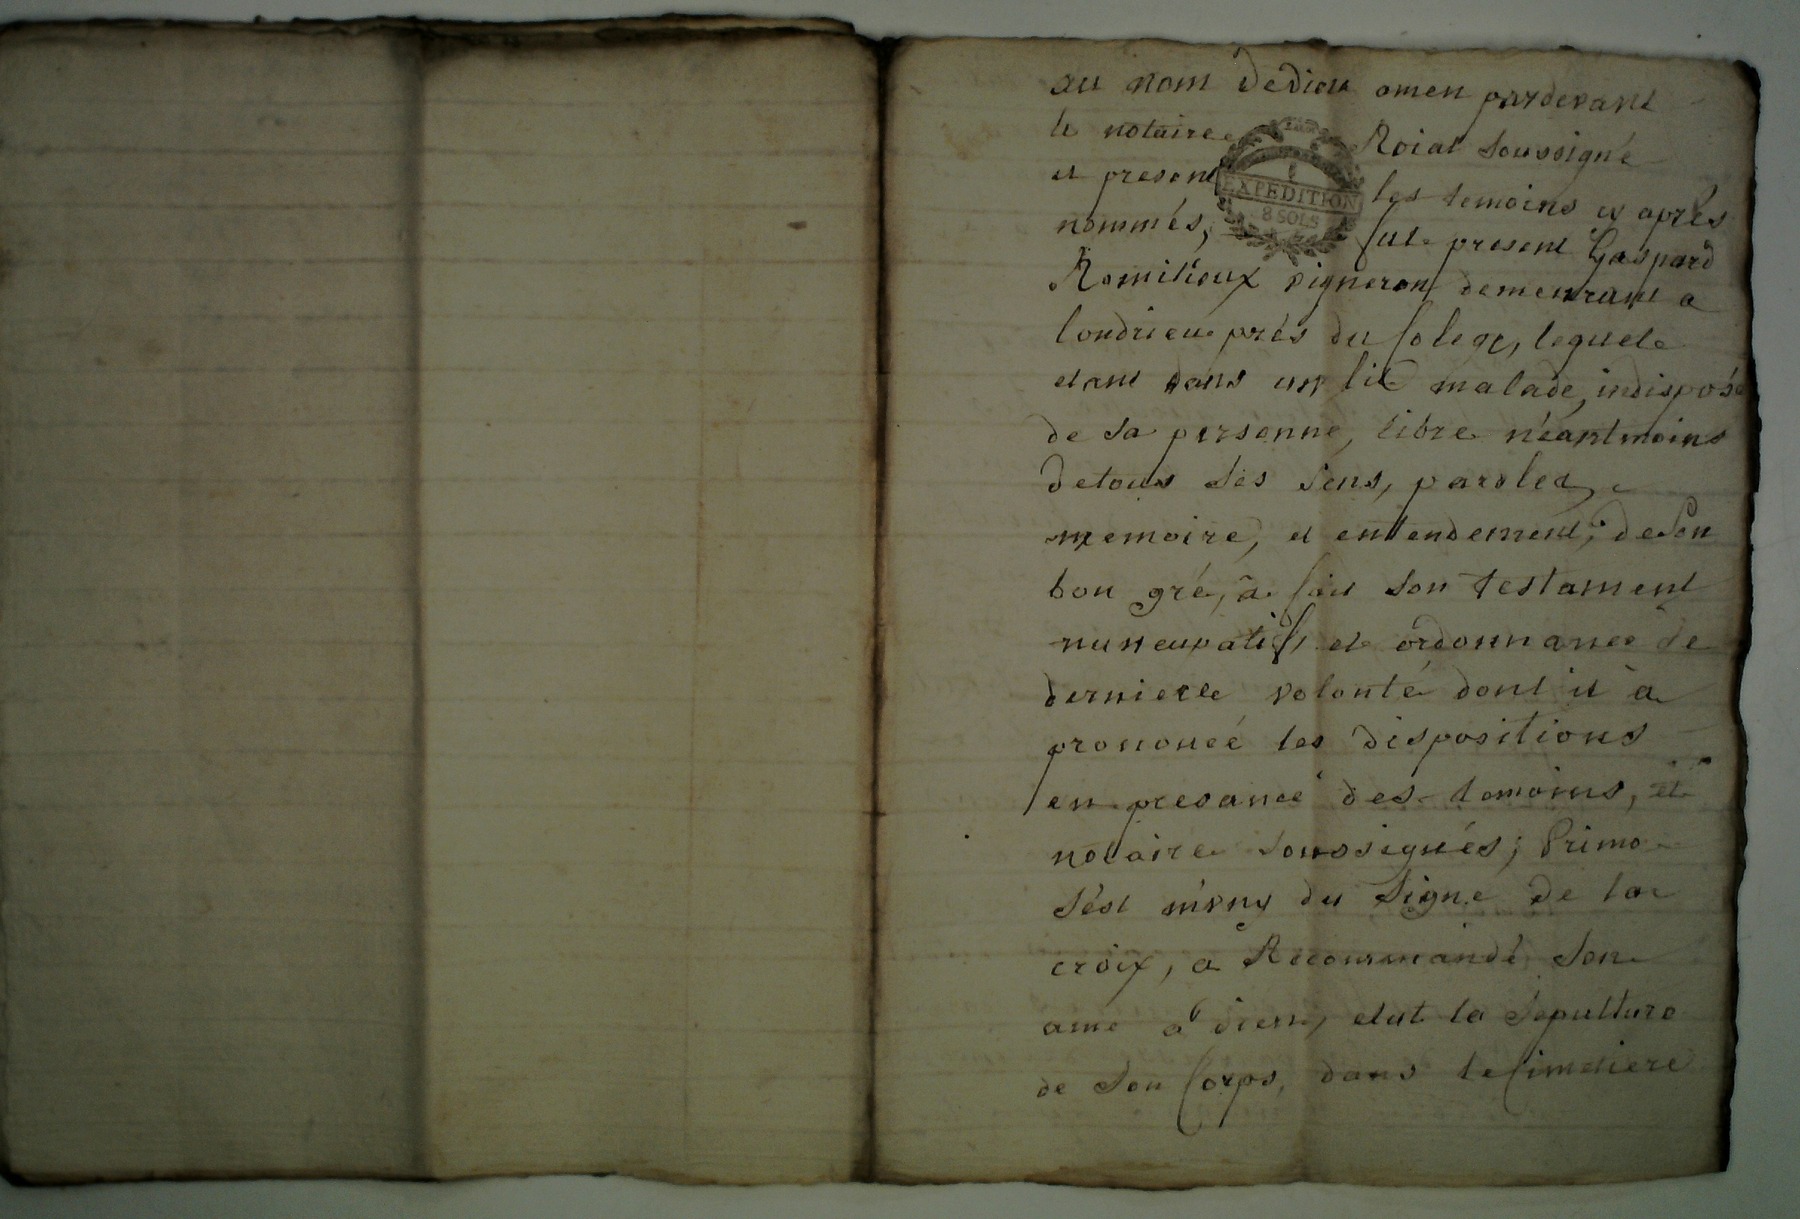 au nom de dieu amen pardevant
le notaire Roial soussigné
et present les temoins cy après
nommés, fut present Gaspard
Romilieux vigneron demeurant a
Condrieu près du Colege, lequel
etant dans un lit malade, indisposé
de sa personne, libre néantmoins
de tous ses sens, parolles
memoire, et entendement; de son
bon gré, à fait son testament
nuncupatif, et ordonnance de
derniere volonté dont il à
prononcé les dispositions
en presance des temoins, et
notaire soussignés; Primo
s'est muny du signe de la
croix, a Recommandé son
ame a dieu, elut la sepulture
de son Corps, dans le Cimetiere
EXPEDITION
8 SOLS